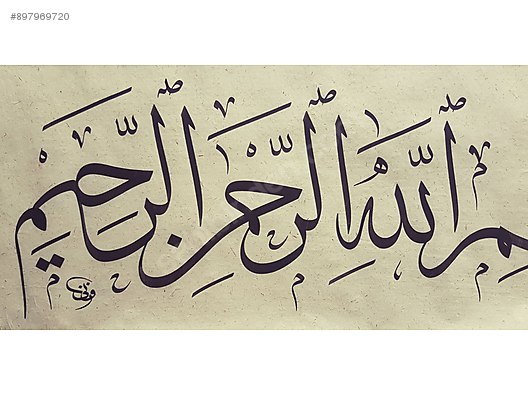 #897969720
ـم ٱللَّهِ ٱلرَّحْمٰنِ ٱلرَّحِيمِ